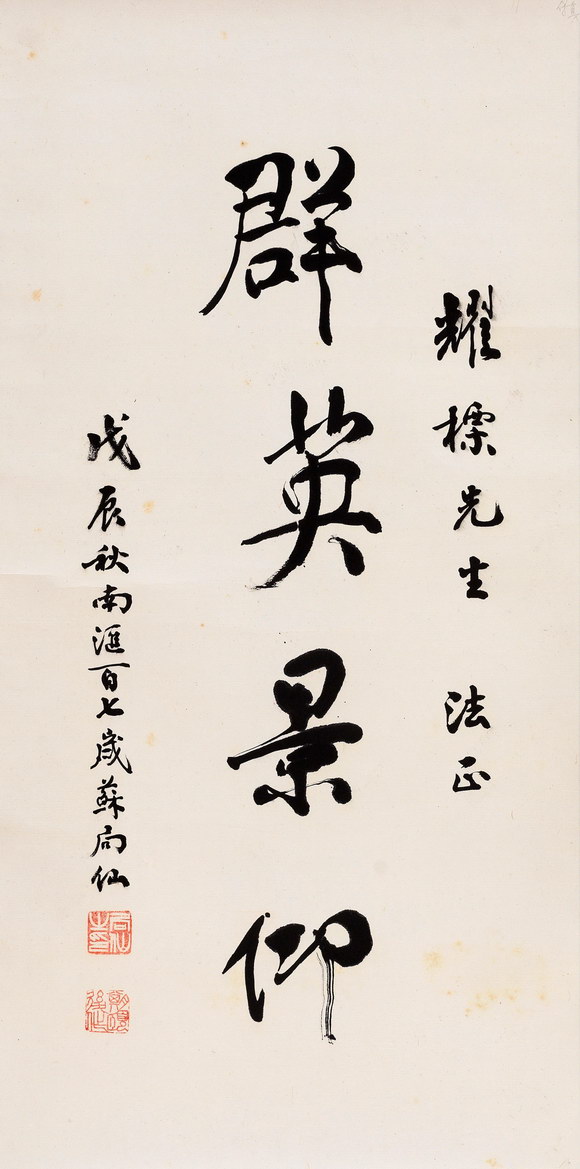 耀標先生 法正
群英景仰
戊辰秋南滙百七歲蘇局仙